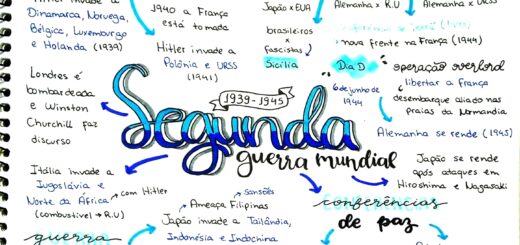 Hitler invade a
Dinamarca, Noruega,
Bélgica, Luxemburgo
e Holanda (1939)
1940 a França
está tomada
Hitler invade a
Polônia e URSS
(1941)
Japão x EUA
brasileiros
x
fascistas
Sicília
Alemanha x R.U
Alemanha x URSS
nova frente na França (1944)
Dia D
operação overlord
6 de junho de
1944
libertar a França
desembarque aliado nas
praias da Normandia
Alemanha se rende (1945)
Londres é
bombardeada
e Winston
Churchill faz
discurso
1939-1945
Segunda
guerra mundial
Itália invade a
Iugoslávia e
Norte da África
(combustível → R.U)
com Hitler
sansões
Ameaça Filipinas
Japão invade a Tailândia,
Indonésia e Indochina
Japão se rende
após ataques em
Hiroshima e Nagasaki
conferências
de paz
guerra